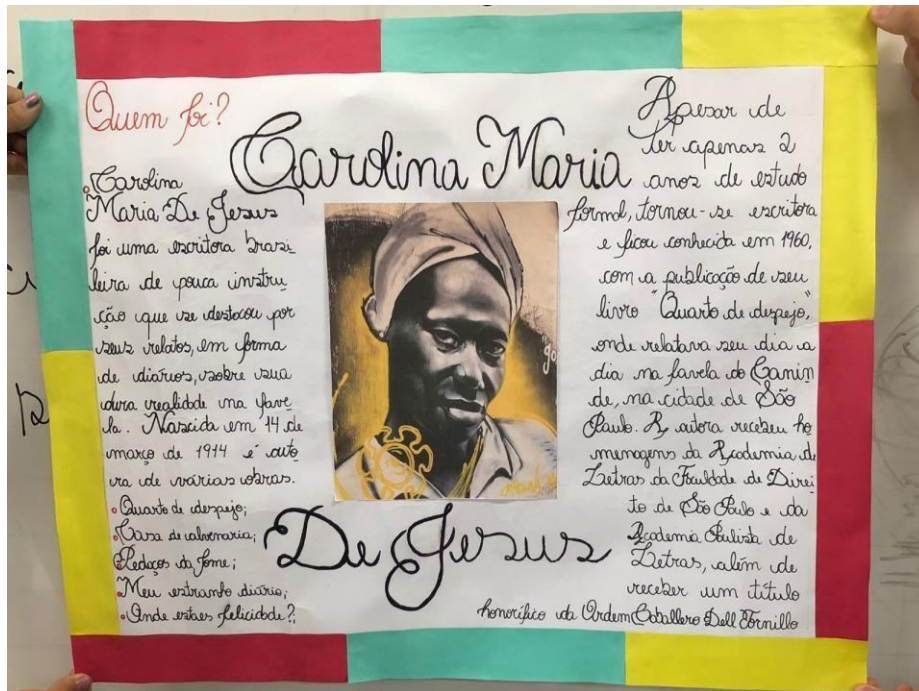 Quem foi?
Carolina Maria
De Jesus
• Carolina
Maria De Jesus
foi uma escritora brasi-
leira de pouca instru-
ção que se destacou por
seus relatos, em forma
de diários, sobre sua
dura realidade na fave-
la. Nascida em 14 de
março de 1914 é auto
ra de várias obras.
• Quarto de despejo;
• Casa de alvenaria;
• Pedaços da fome;
• Meu estranho diário;
• Onde estaes felicidade?;
Apesar de
ter apenas 2
anos de estudo
formal, tornou-se escritora
e ficou conhecida em 1960,
com a publicação de seu
livro "Quarto de despejo",
onde relatava seu dia a
dia na favela do Canin
de, na cidade de São
Paulo. A autora recebeu ho
menagens da Academia de
Letras da Faculdade de Direi
to de São Paulo e da
Academia Paulista de
Letras, além de
receber um título
honorífico da Ordem Caballero Dell Tornillo